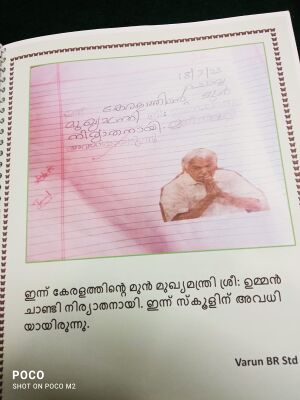 18/7/23
കേരളത്തിന്റെ
മുഖ്യമന്ത്രി
നിര്യാതനായി.
ഇന്ന് കേരളത്തിന്റെ മുൻ മുഖ്യമന്ത്രി ശ്രീ: ഉമ്മൻ
ചാണ്ടി നിര്യാതനായി. ഇന്ന് സ്കൂളിന് അവധി
യായിരുന്നു.
Varun BR Std
POCO
SHOT ON POCO M2